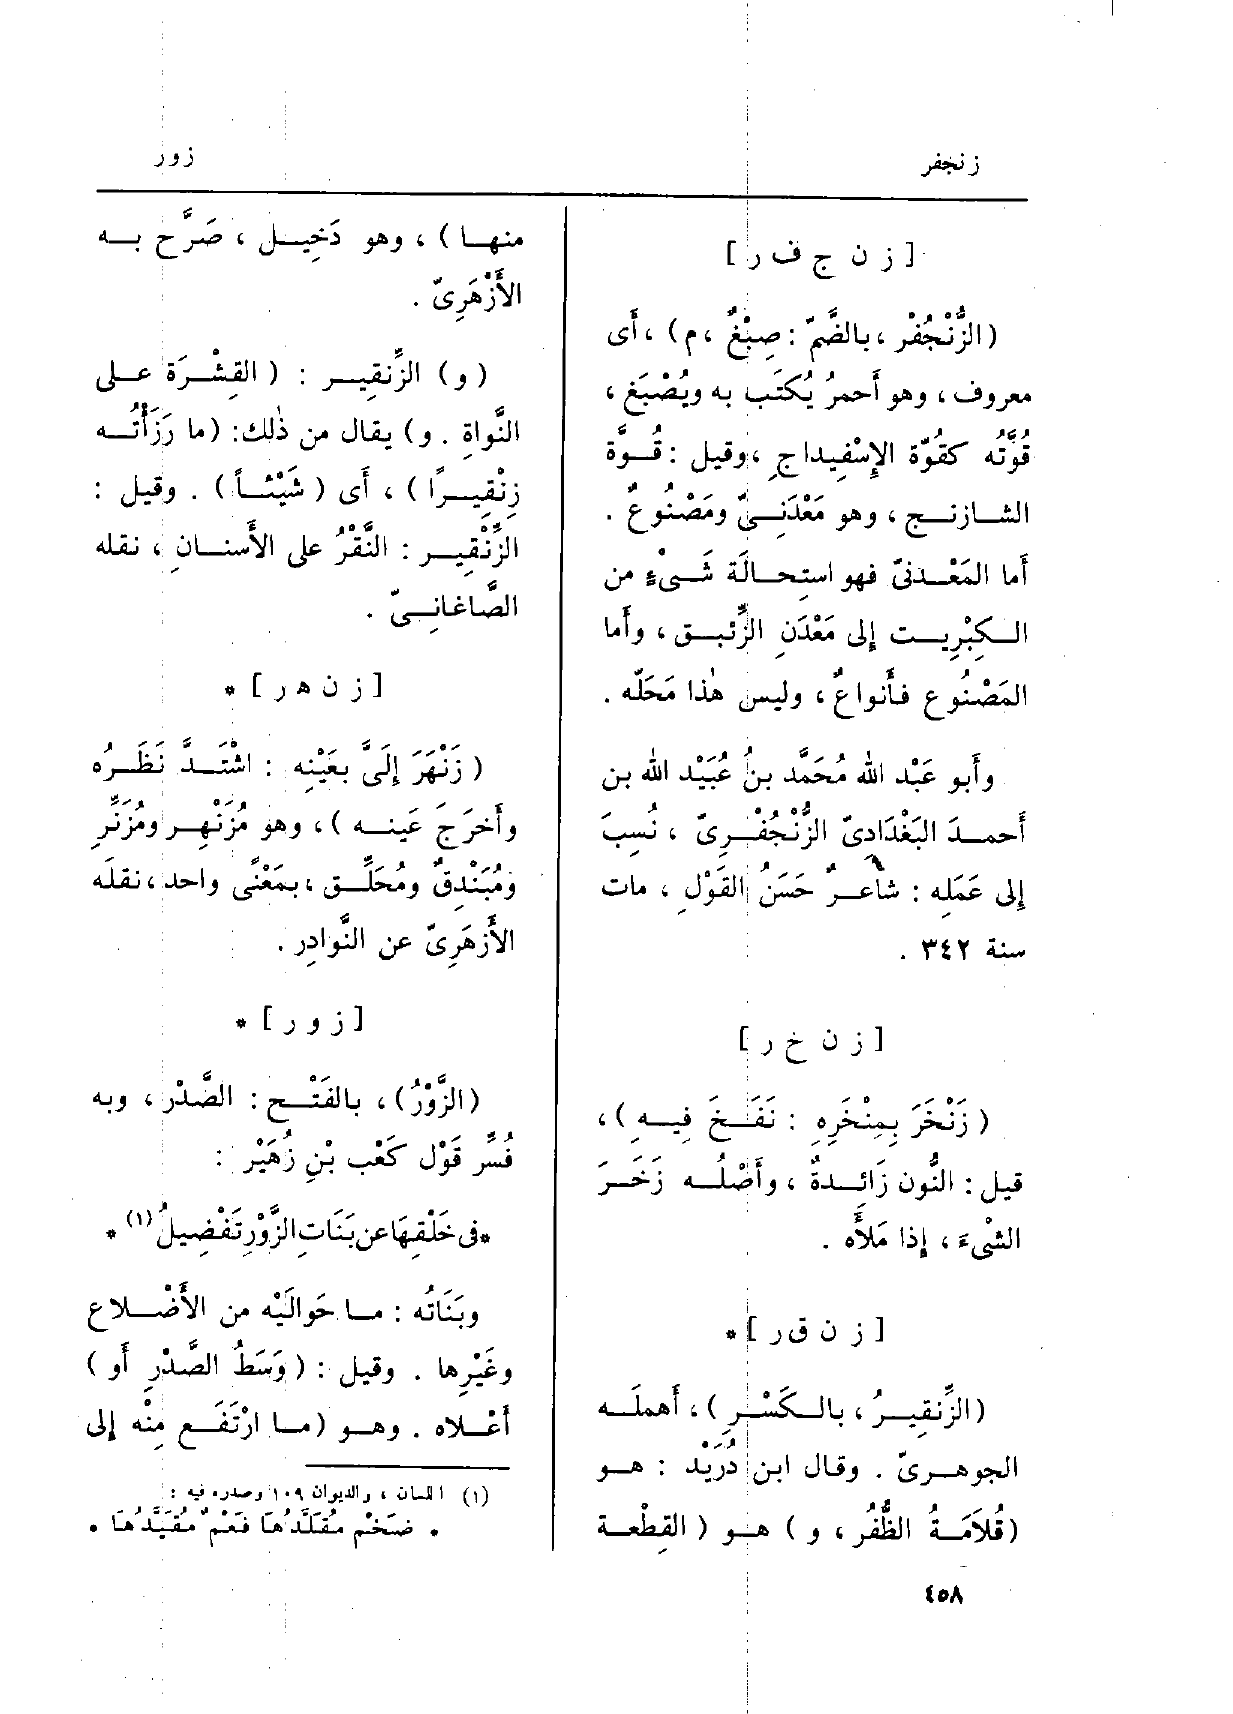 زنجفر
زور
[ ز ن ج ف ر ]
( الزُّنْجُفْر ، بالضَّمّ : صِبْغٌ ، م ) ، أَى
معروف ، وهو أَحمرُ يُكتَب به ويُصْبَغ ،
قُوَّتُه كقُوّة الإِسْفِيداجِ ، وقيل : قُــوَّة
الشــازنــج ، وهو مَعْدَنــىٌّ ومَصْنُوعٌ .
أما المَعْــدنىّ فهو استِحــالَة شَــىْءٍ من
الــكِبْرِيــت إِلى مَعْدَنِ الزِّئبــق ، وأَما
المَصْنُوع فــأَنواعٌ ، وليس هٰذا مَحَلّه .
وأَبو عَبْد الله مُحَمَّد بنُ عُبَيْد الله بن
أَحمــدَ البَغْدَادىّ الزُّنْجُفْــرِىّ ، نُسِبَ
إِلى عَمَلِه : شاعــرٌ حَسَنُ القَوْلِ ، مات
سنة ٣٤٢ .
[ ز ن خ ر ]
( زَنْخَرَ بِمِنْخَرِه : نَفَــخَ فِيــه ) ،
قيل : النُّون زَائِــدةٌ ، وأَصْلُــه زَخَــرَ
الشْىءَ ، إِذا مَلأَه .
[ ز ن ق ر ] *
( الزِّنقيــرُ ، بالــكَسْــرِ ) ، أَهملَــه
الجوهــرىّ . وقال ابن دُرَيْد : هــو
( قُلاَمَــةُ الظُّفُر ، و ) هــو ( القِطْعــة
منهــا ) ، وهو دَخِيــل ، صَرَّح بــه
الأَزْهَرِىّ .
( و ) الزِّنقِيــر : ( القِشْــرَة عــلى
النَّواةِ . و ) يقال من ذٰلك : ( ما رَزَأْتُــه
زِنْقِيــرًا ) ، أَى ( شَيْئــاً ) . وقيل :
الزِّنْقِيــر : النَّقْرُ على الأَسنــانِ ، نقله
الصَّاغانِــىّ .
[ ز ن ه ر ] *
( زَنْهَرَ إِلَىَّ بعَيْنِه : اشْتَــدَّ نَظَــرُه
وأَخرَجَ عَينــه ) ، وهو مُزَنْهِــر ومُزَنِّر
ومُبَنْدِقٌ ومُحَلِّــق ، بمَعْنًى واحد ، نقلَه
الأَزهَرِىّ عن النَّوادِر .
[ ز و ر ] *
( الزَّوْرُ ) ، بالفَتْــح : الصَّدْر ، وبه
فُسِّر قَوْل كَعْب بْنِ زُهَيْر :
* فى خَلْقِهَا عن بَنَاتِ الزَّوْرِ تَفْضِيلُ (١) *
وبَنَاتُه : مــا حَوالَيْه من الأَضْــلاع
وغَيْرِها . وقيل : ( وَسَطُ الصَّدْرِ أَو )
أَعْــلاه . وهــو ( مــا ارْتَفَــع مِنْه إِلى
(١) اللسان ، والديوان ١٠٩ وصدره فيه :
* ضَخْم مُقَلَّدُهَا فَعْمٌ مُقَيَّدُهَا *
٤٥٨